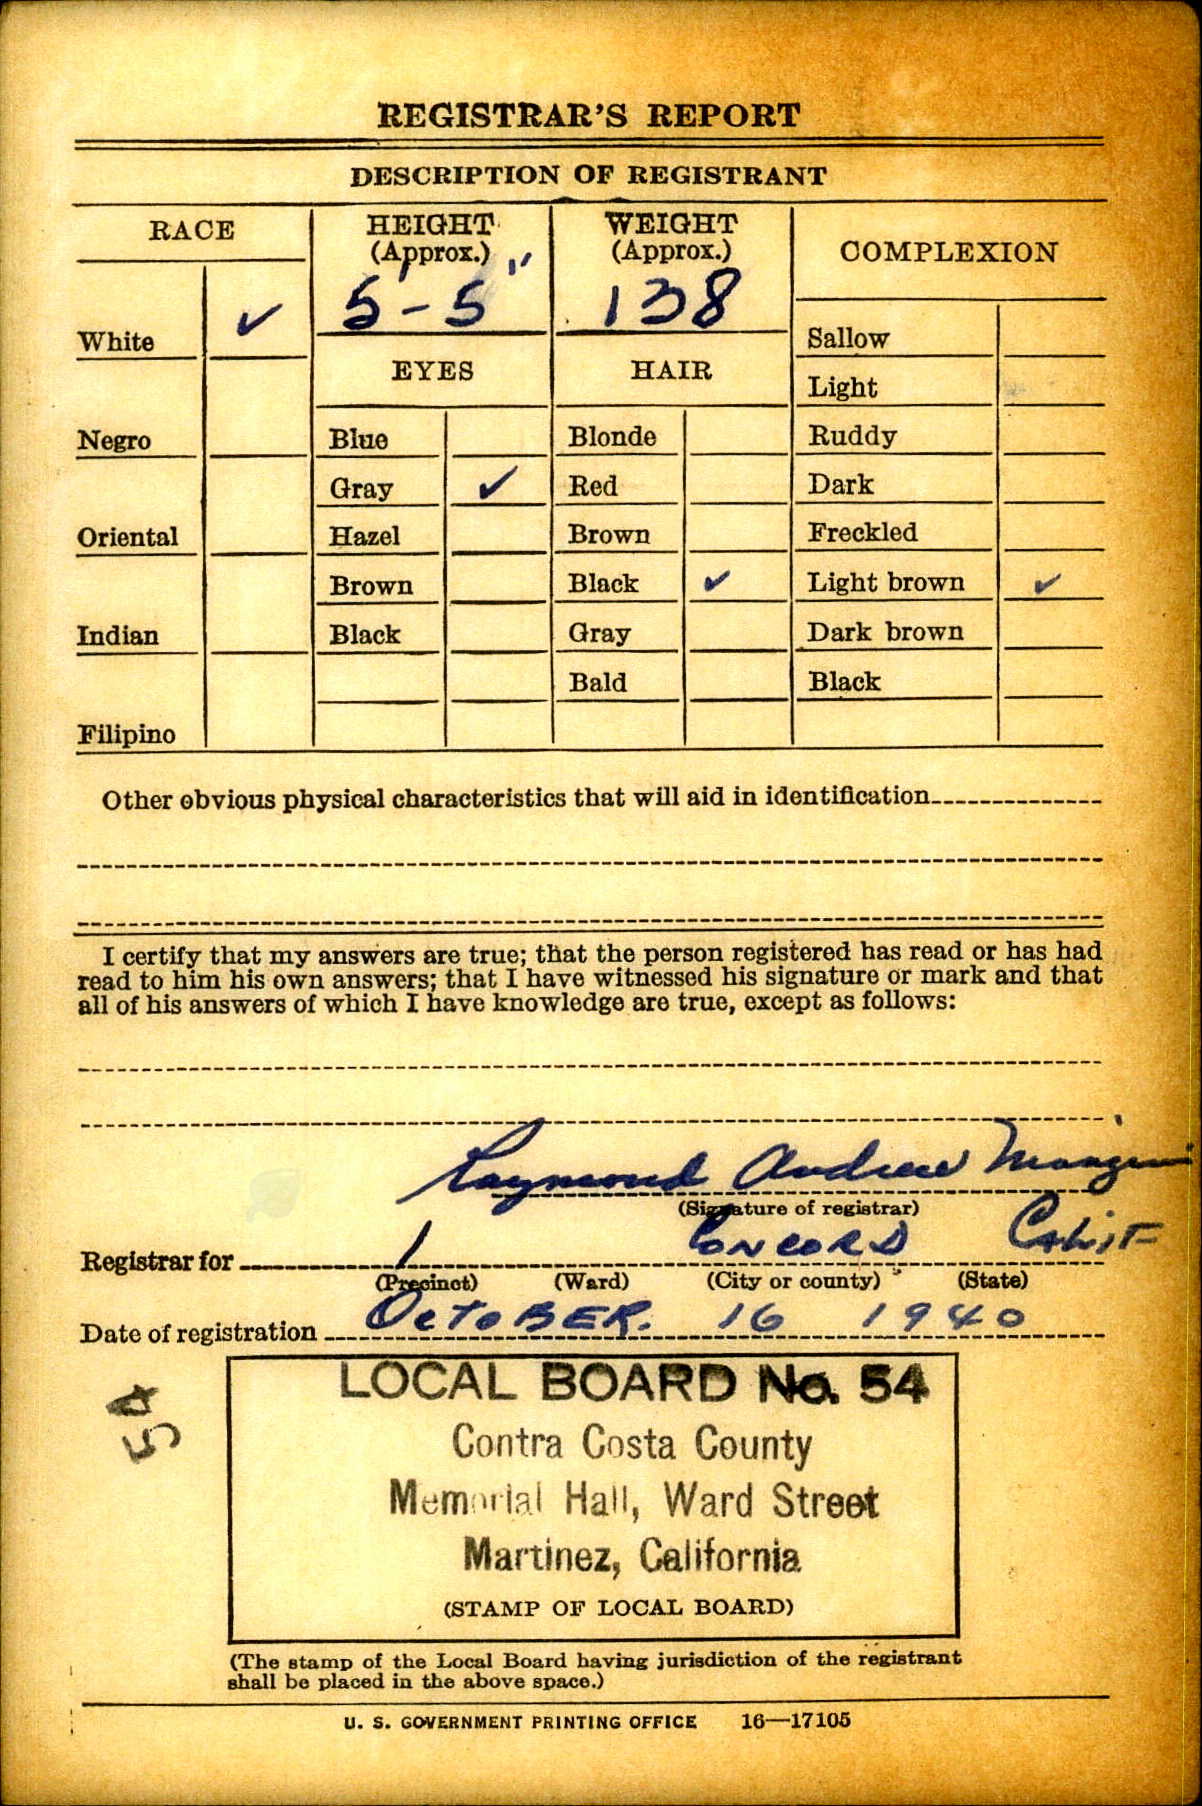 REGISTRAR'S REPORT
DESCRIPTION OF REGISTRANT
RACE
HEIGHT
(Approx.)
5'-5"
WEIGHT
(Approx.)
138
COMPLEXION
White ✓
Negro
Oriental
Indian
Filipino
EYES
Blue
Gray ✓
Hazel
Brown
Black
HAIR
Blonde
Red
Brown
Black ✓
Gray
Bald
Sallow
Light
Ruddy
Dark
Freckled
Light brown ✓
Dark brown
Black
Other obvious physical characteristics that will aid in identification
I certify that my answers are true; that the person registered has read or has had
read to him his own answers; that I have witnessed his signature or mark and that
all of his answers of which I have knowledge are true, except as follows:
Raymond Andrew
(Signature of registrar)
Registrar for 1 CONCORD CALIF
(Precinct) (Ward) (City or county) (State)
Date of registration OCTOBER. 16 1940
54
LOCAL BOARD No. 54
Contra Costa County
Memorial Hall, Ward Street
Martinez, California
(STAMP OF LOCAL BOARD)
(The stamp of the Local Board having jurisdiction of the registrant
shall be placed in the above space.)
U. S. GOVERNMENT PRINTING OFFICE 16—17105